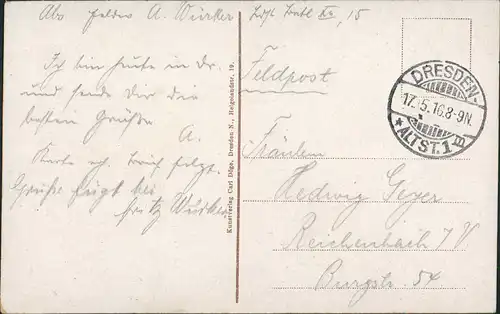 Abs
A. Würker
XII, 15
Feldpost
Ich bin heute in Dr.
und sende Dir die
besten Grüße
A.
Karte
Brief folgt.
Grüße fügt bei
Fritz Würker
Kunstverlag Carl Döge, Dresden N., Helgolandstr. 19.
DRESDEN-
17.5.16.8-9N.
* ALTST. 1 b
Fräulein
Hedwig Geyer
Reichenbach i/V
Burgstr. 54